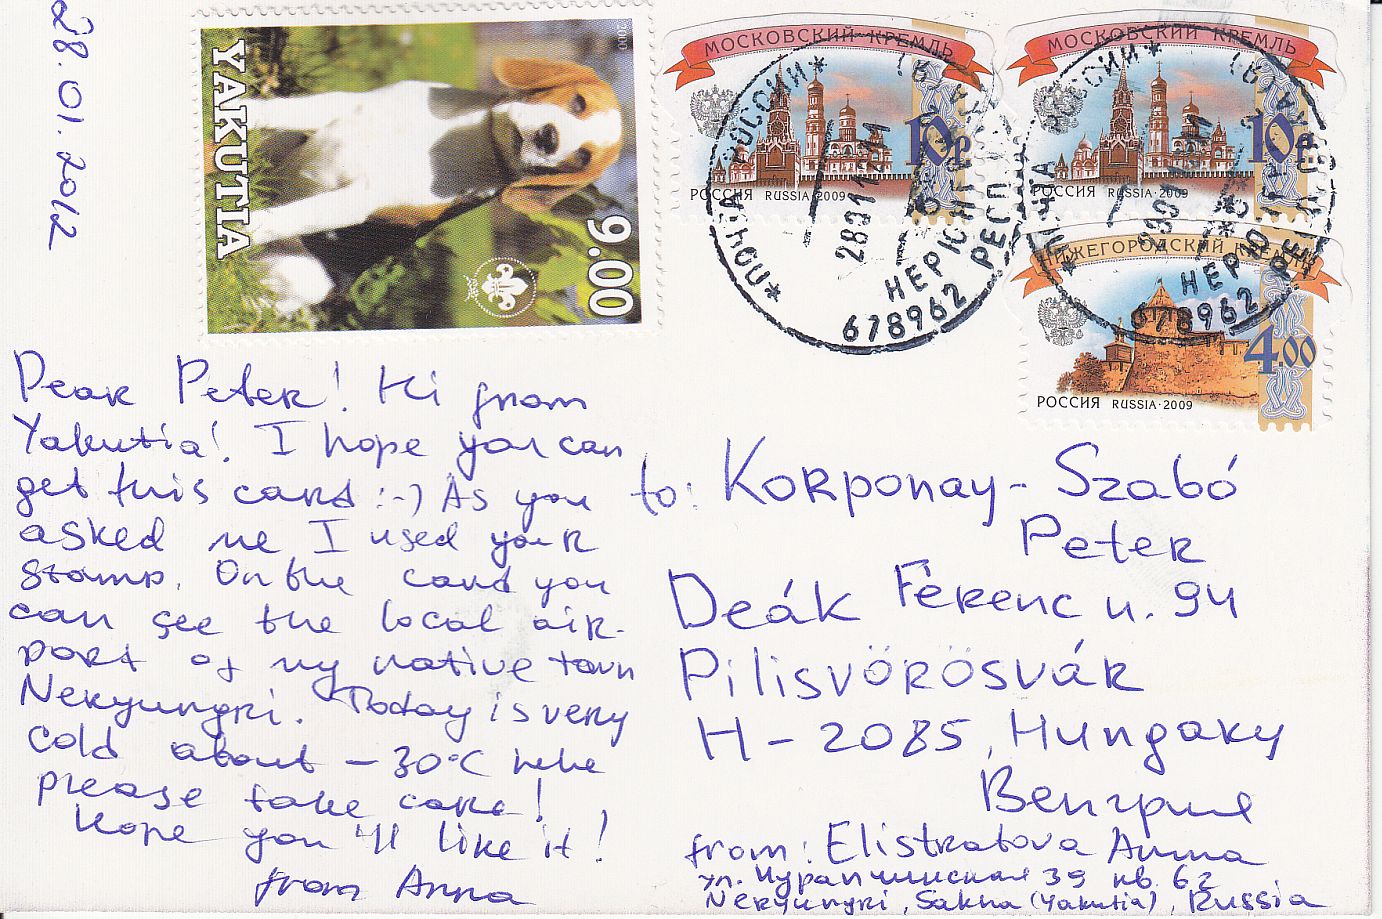 28.01.2012
YAKUTIA
2000
9.00
МОСКОВСКИЙ КРЕМЛЬ
10р
РОССИЯ RUSSIA·2009
МОСКОВСКИЙ КРЕМЛЬ
10р
РОССИЯ RUSSIA·2009
НИЖЕГОРОДСКИЙ КРЕМЛЬ
4.00
РОССИЯ RUSSIA·2009
*ПОЧТА РОССИИ*
678962
*ПОЧТА РОССИИ*
678962
Dear Peter! Hi from
Yakutia! I hope you can
get this card :-) As you
asked me I used your
stamp. On the card you
can see the local air-
port of my native town
Neryungri. Today is very
cold about -30°C here
please take care!
Hope you'll like it!
from Anna
to: Korponay-Szabó
Peter
Deák Ferenc u. 94
Pilisvörösvár
H-2085, Hungary
Венгрия
from: Elistratova Anna
ул. Чурапчинская 39 кв. 62
Neryungri, Sakha (Yakutia), Russia